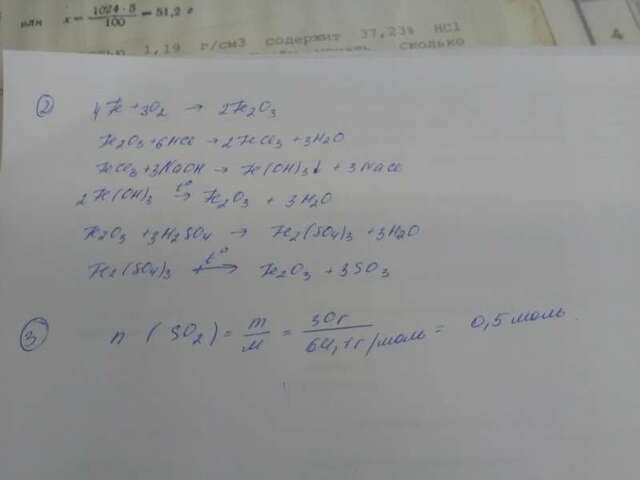 или x = 1024·5/100 = 51,2 г
1,19 г/см3 содержит 37,23% HCl
сколько
4
② 4Fe + 3O2 → 2Fe2O3
Fe2O3 + 6HCl → 2FeCl3 + 3H2O
FeCl3 + 3NaOH → Fe(OH)3↓ + 3NaCl
2Fe(OH)3 t° → Fe2O3 + 3H2O
Fe2O3 + 3H2SO4 → Fe2(SO4)3 + 3H2O
Fe2(SO4)3 t° → Fe2O3 + 3SO3
③ n (SO2) = m/M = 30г/64,1г/моль = 0,5 моль